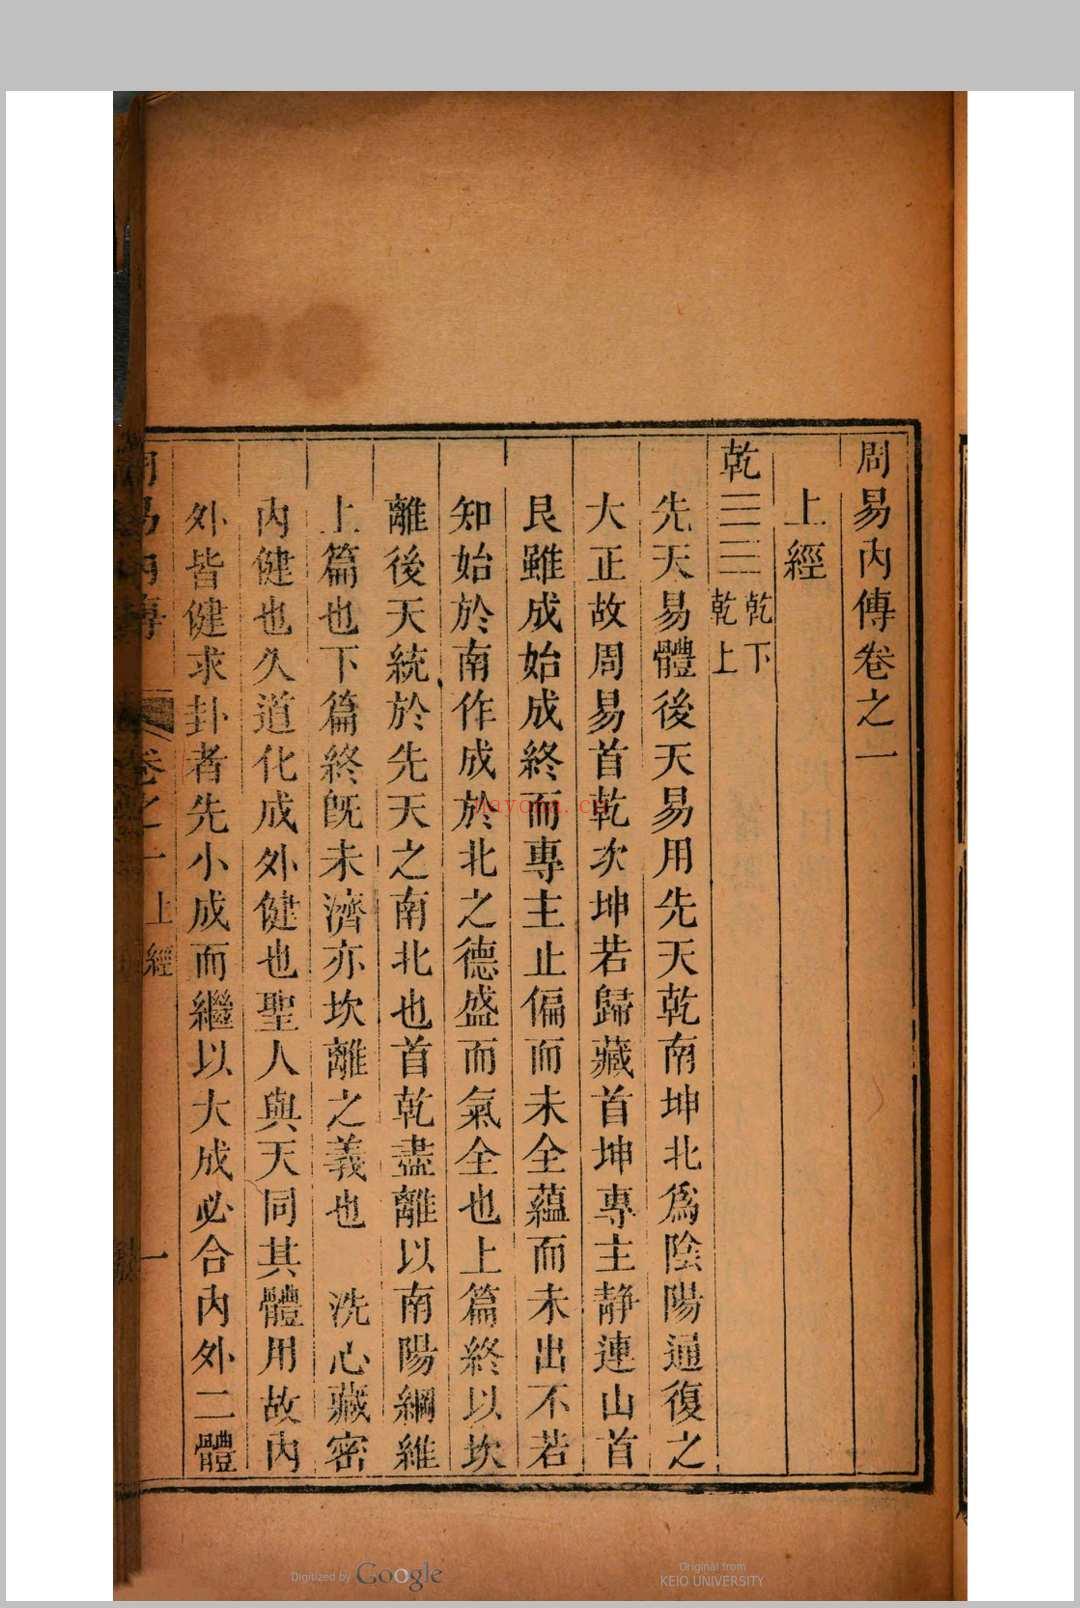 周易內傳卷之一
上經
乾☰☰乾下乾上
先天易體後天易用先天乾南坤北爲陰陽通復之
大正故周易首乾次坤若歸藏首坤專主靜連山首
艮雖成始成終而專主止偏而未全蘊而未出不若
知始於南作成於北之德盛而氣全也上篇終以坎
離後天統於先天之南北也首乾盡離以南陽綱維
上篇也下篇終旣未濟亦坎離之義也 洗心藏密
內健也久道化成外健也聖人與天同其體用故內
外皆健求卦者先小成而繼以大成必合內外二體
周易內傳 卷之一 上經 一
Digitized by Google
Original from
KEIO UNIVERSITY